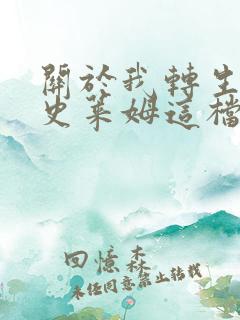 關於我轉生
史萊姆這檔
回憶森
未经同意禁止转载